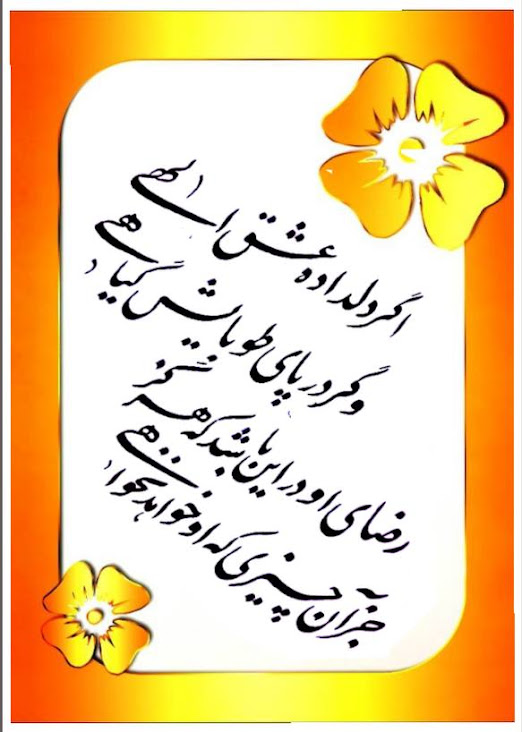 اگر دلدادهٔ عشق الهی
وگر در پای طوبایش گیاهی
رضای او در این باشد که هرگز
جز آن چیزی که او خواهد نخواهی